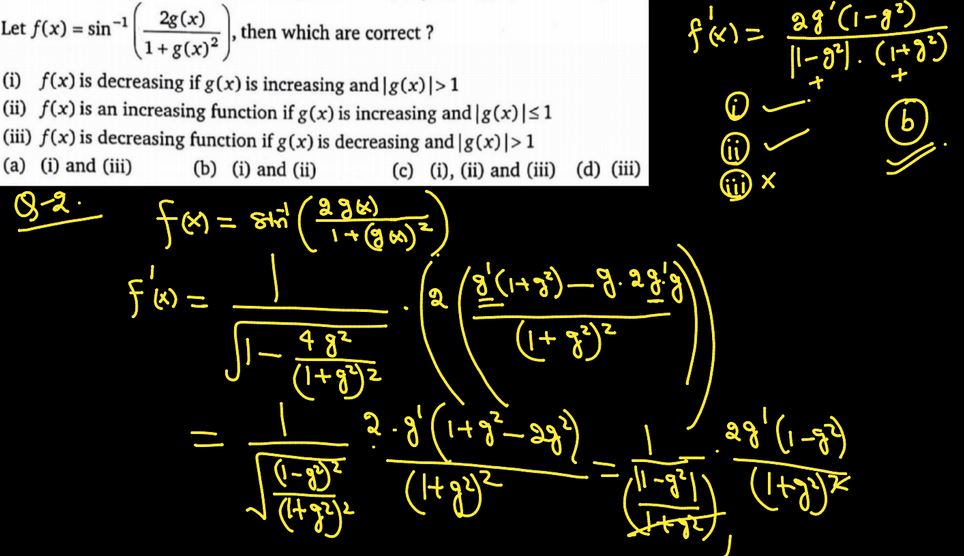 Let f(x) = sin⁻¹ (2g(x) / (1 + g(x)²)), then which are correct ?
(i) f(x) is decreasing if g(x) is increasing and |g(x)| > 1
(ii) f(x) is an increasing function if g(x) is increasing and |g(x)| ≤ 1
(iii) f(x) is decreasing function if g(x) is decreasing and |g(x)| > 1
(a) (i) and (iii) (b) (i) and (ii) (c) (i), (ii) and (iii) (d) (iii)
f'(x) = 2g'(1-g²) / (|1-g²| . (1+g²))
+ +
(i) ✓
(ii) ✓
(iii) ×
(b)
Q-2.
f(x) = sin⁻¹ (2g(x) / (1+(g(x))²))
f'(x) = 1 / √(1 - 4g² / (1+g²)²) . (2 (g'(1+g²) - g. 2g'g) / (1+g²)²)
= 1 / √((1-g²)² / (1+g²)²) 2. g'(1+g²-2g²) / (1+g²)² = 1 / (|1-g²| / (1+g²)) . 2g'(1-g²) / (1+g²)²